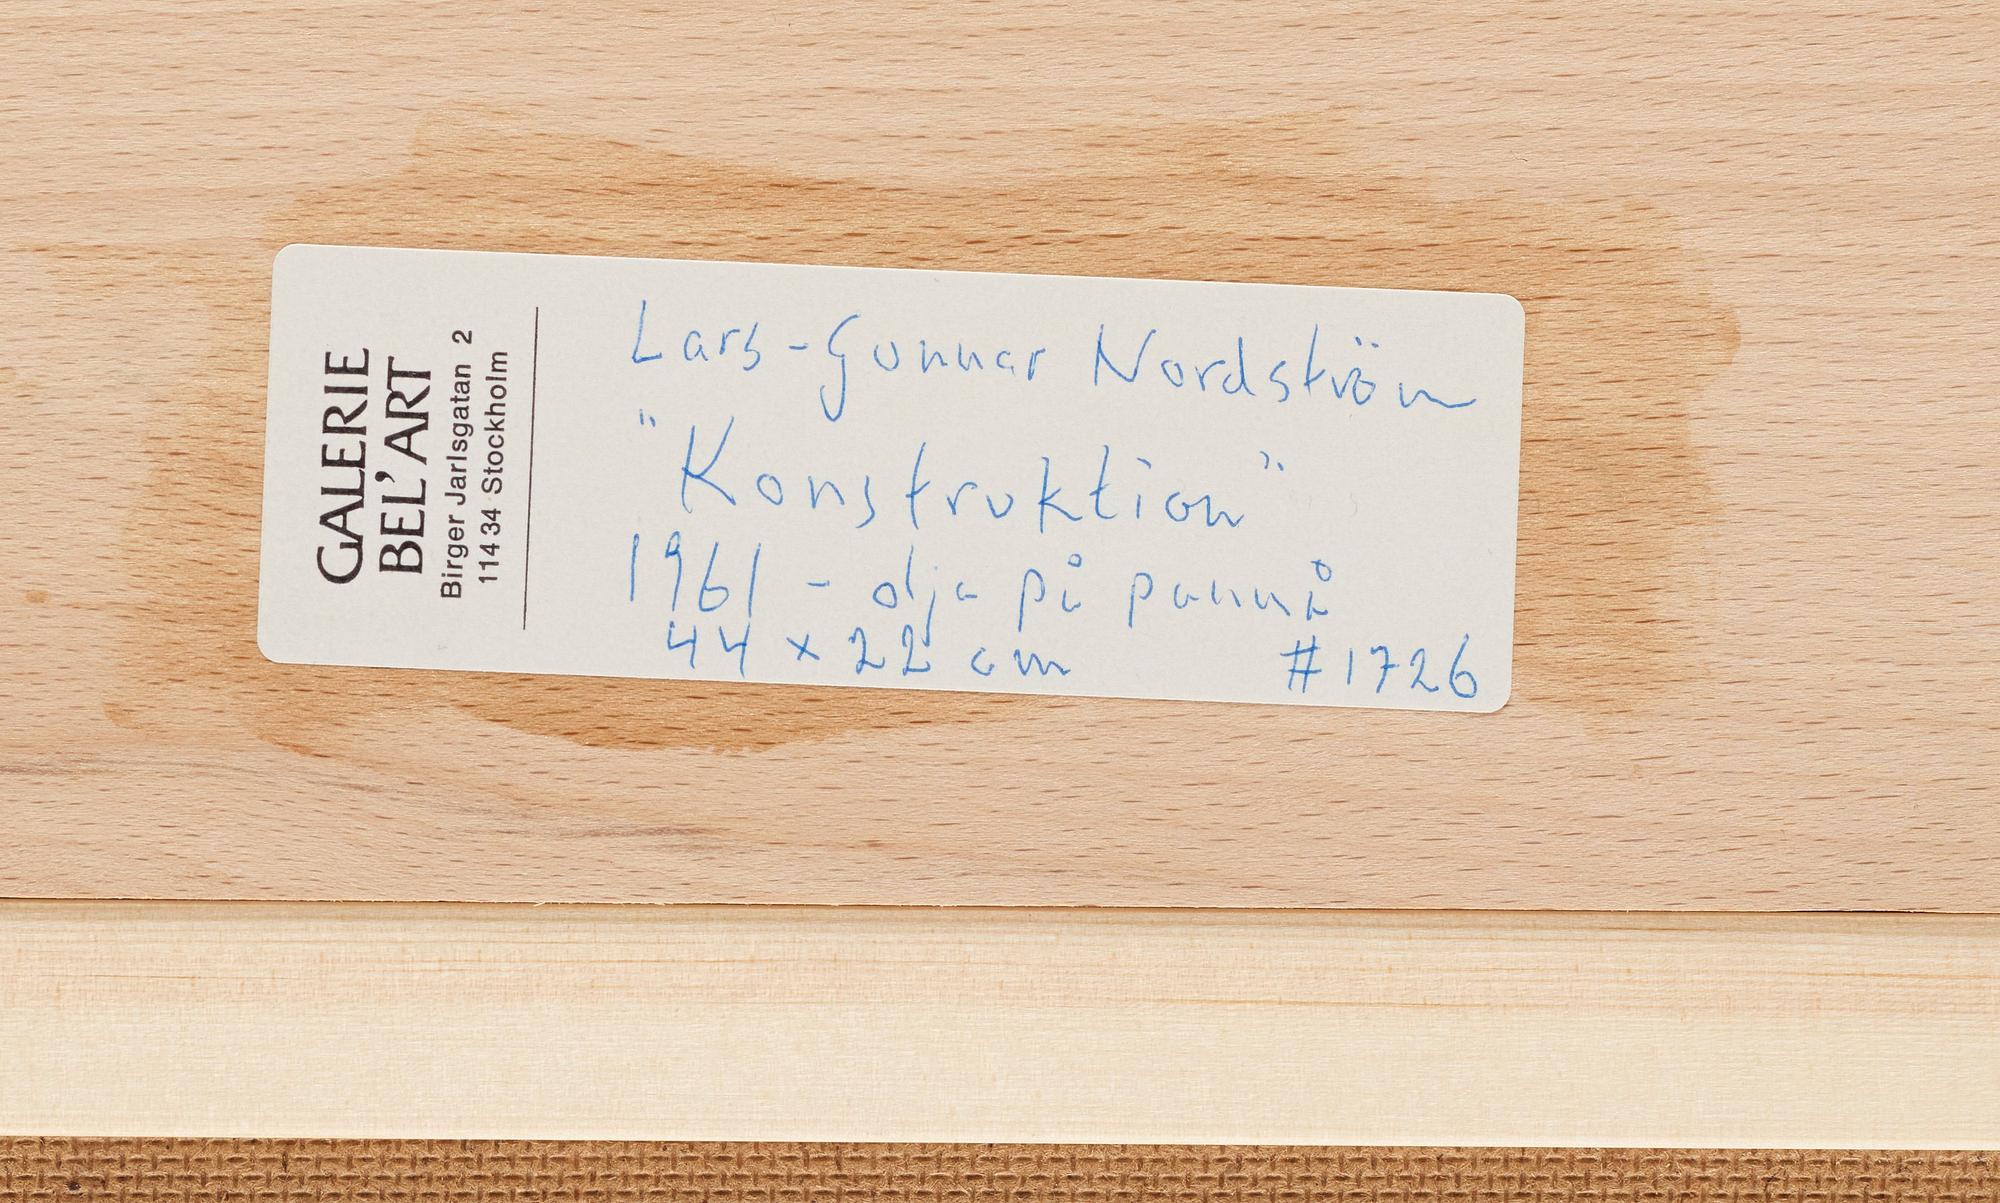 GALERIE
BEL'ART
Birger Jarlsgatan 2
114 34 Stockholm
Lars-Gunnar Nordström
"Konstruktion"
1961 - olja på pannå
44 x 22 cm #1726